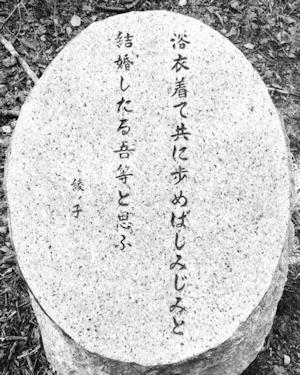 浴衣着て共に歩めばしみじみと
結婚したる吾等と思ふ
綾子